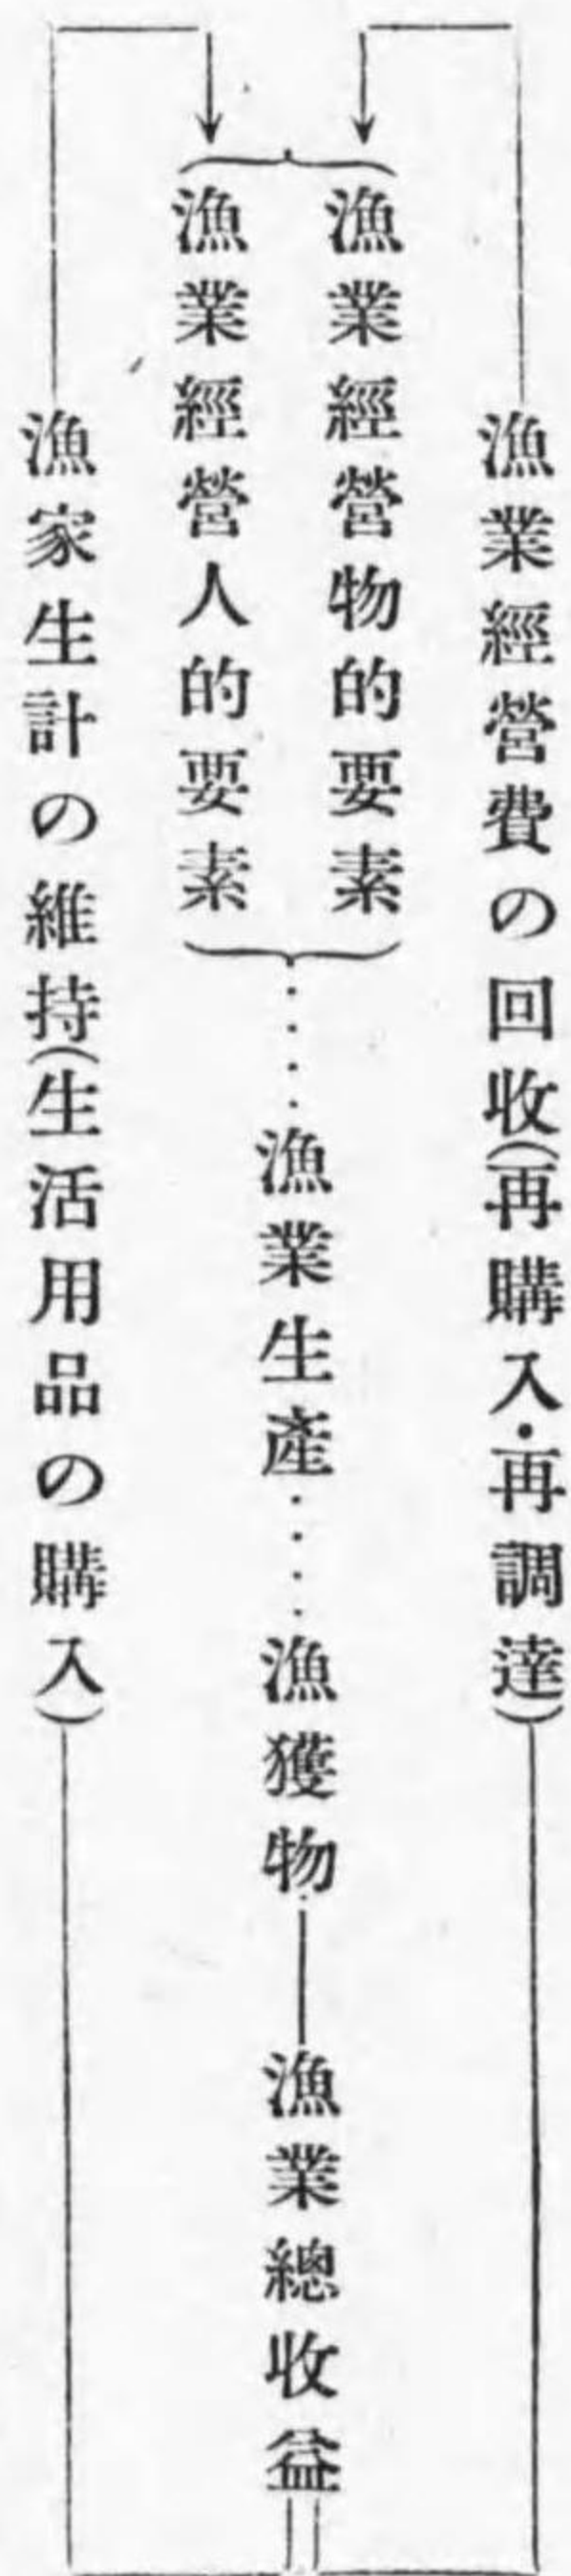 漁業經營費の回收(再購入・再調達)
漁業經營物的要素
漁業經營人的要素
漁業生產
漁獲物
漁業總收益
漁家生計の維持(生活用品の購入)